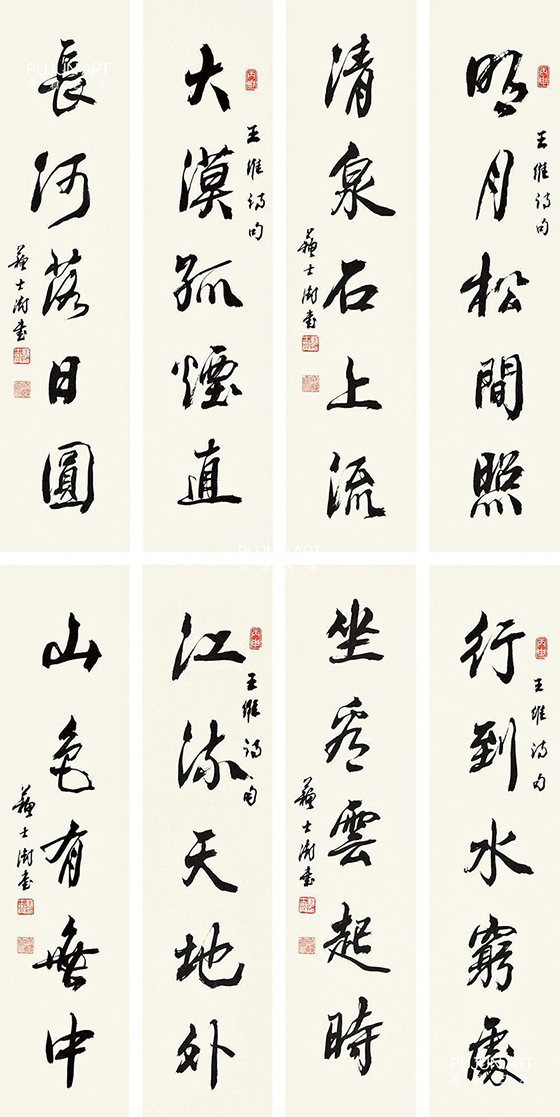 丙申
王維詩句
明月松間照
清泉石上流
蘇士澍書
丙申
王維詩句
大漠孤煙直
長河落日圓
蘇士澍書
丙申
王維詩句
行到水窮處
坐看雲起時
蘇士澍書
丙申
王維詩句
江流天地外
山色有無中
蘇士澍書